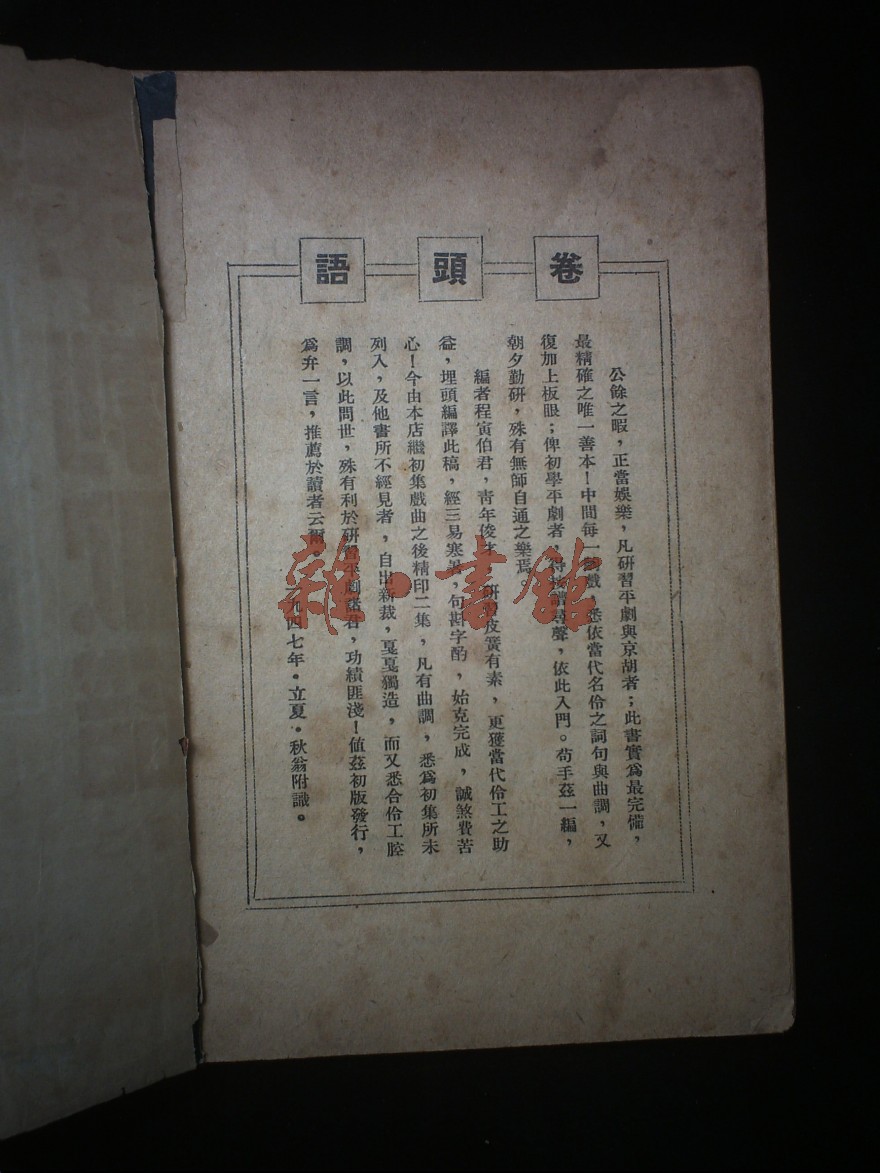 卷頭語
公餘之暇，正當娛樂，凡研習平劇與京胡者；此書實爲最完備，
最精確之唯一善本！中間每一戲，悉依當代名伶之詞句與曲調，又
復加上板眼；俾初學平劇者，得按譜尋聲，依此入門。苟手茲一編，
朝夕勤研，殊有無師自通之樂焉。
編者程寅伯君，靑年俊才，研習皮簧有素，更獲當代伶工之助
益，埋頭編譯此稿，經三易寒暑，句斟字酌，始克完成，誠煞費苦
心！今由本店繼初集戲曲之後精印二集，凡有曲調，悉爲初集所未
列入，及他書所不經見者，自出新裁，戛戛獨造，而又悉合伶工腔
調，以此問世，殊有利於研習平劇諸君，功績匪淺！値茲初版發行，
爲弁一言，推薦於讀者云爾。一九四七年。立夏。秋翁附識。
雜·書館